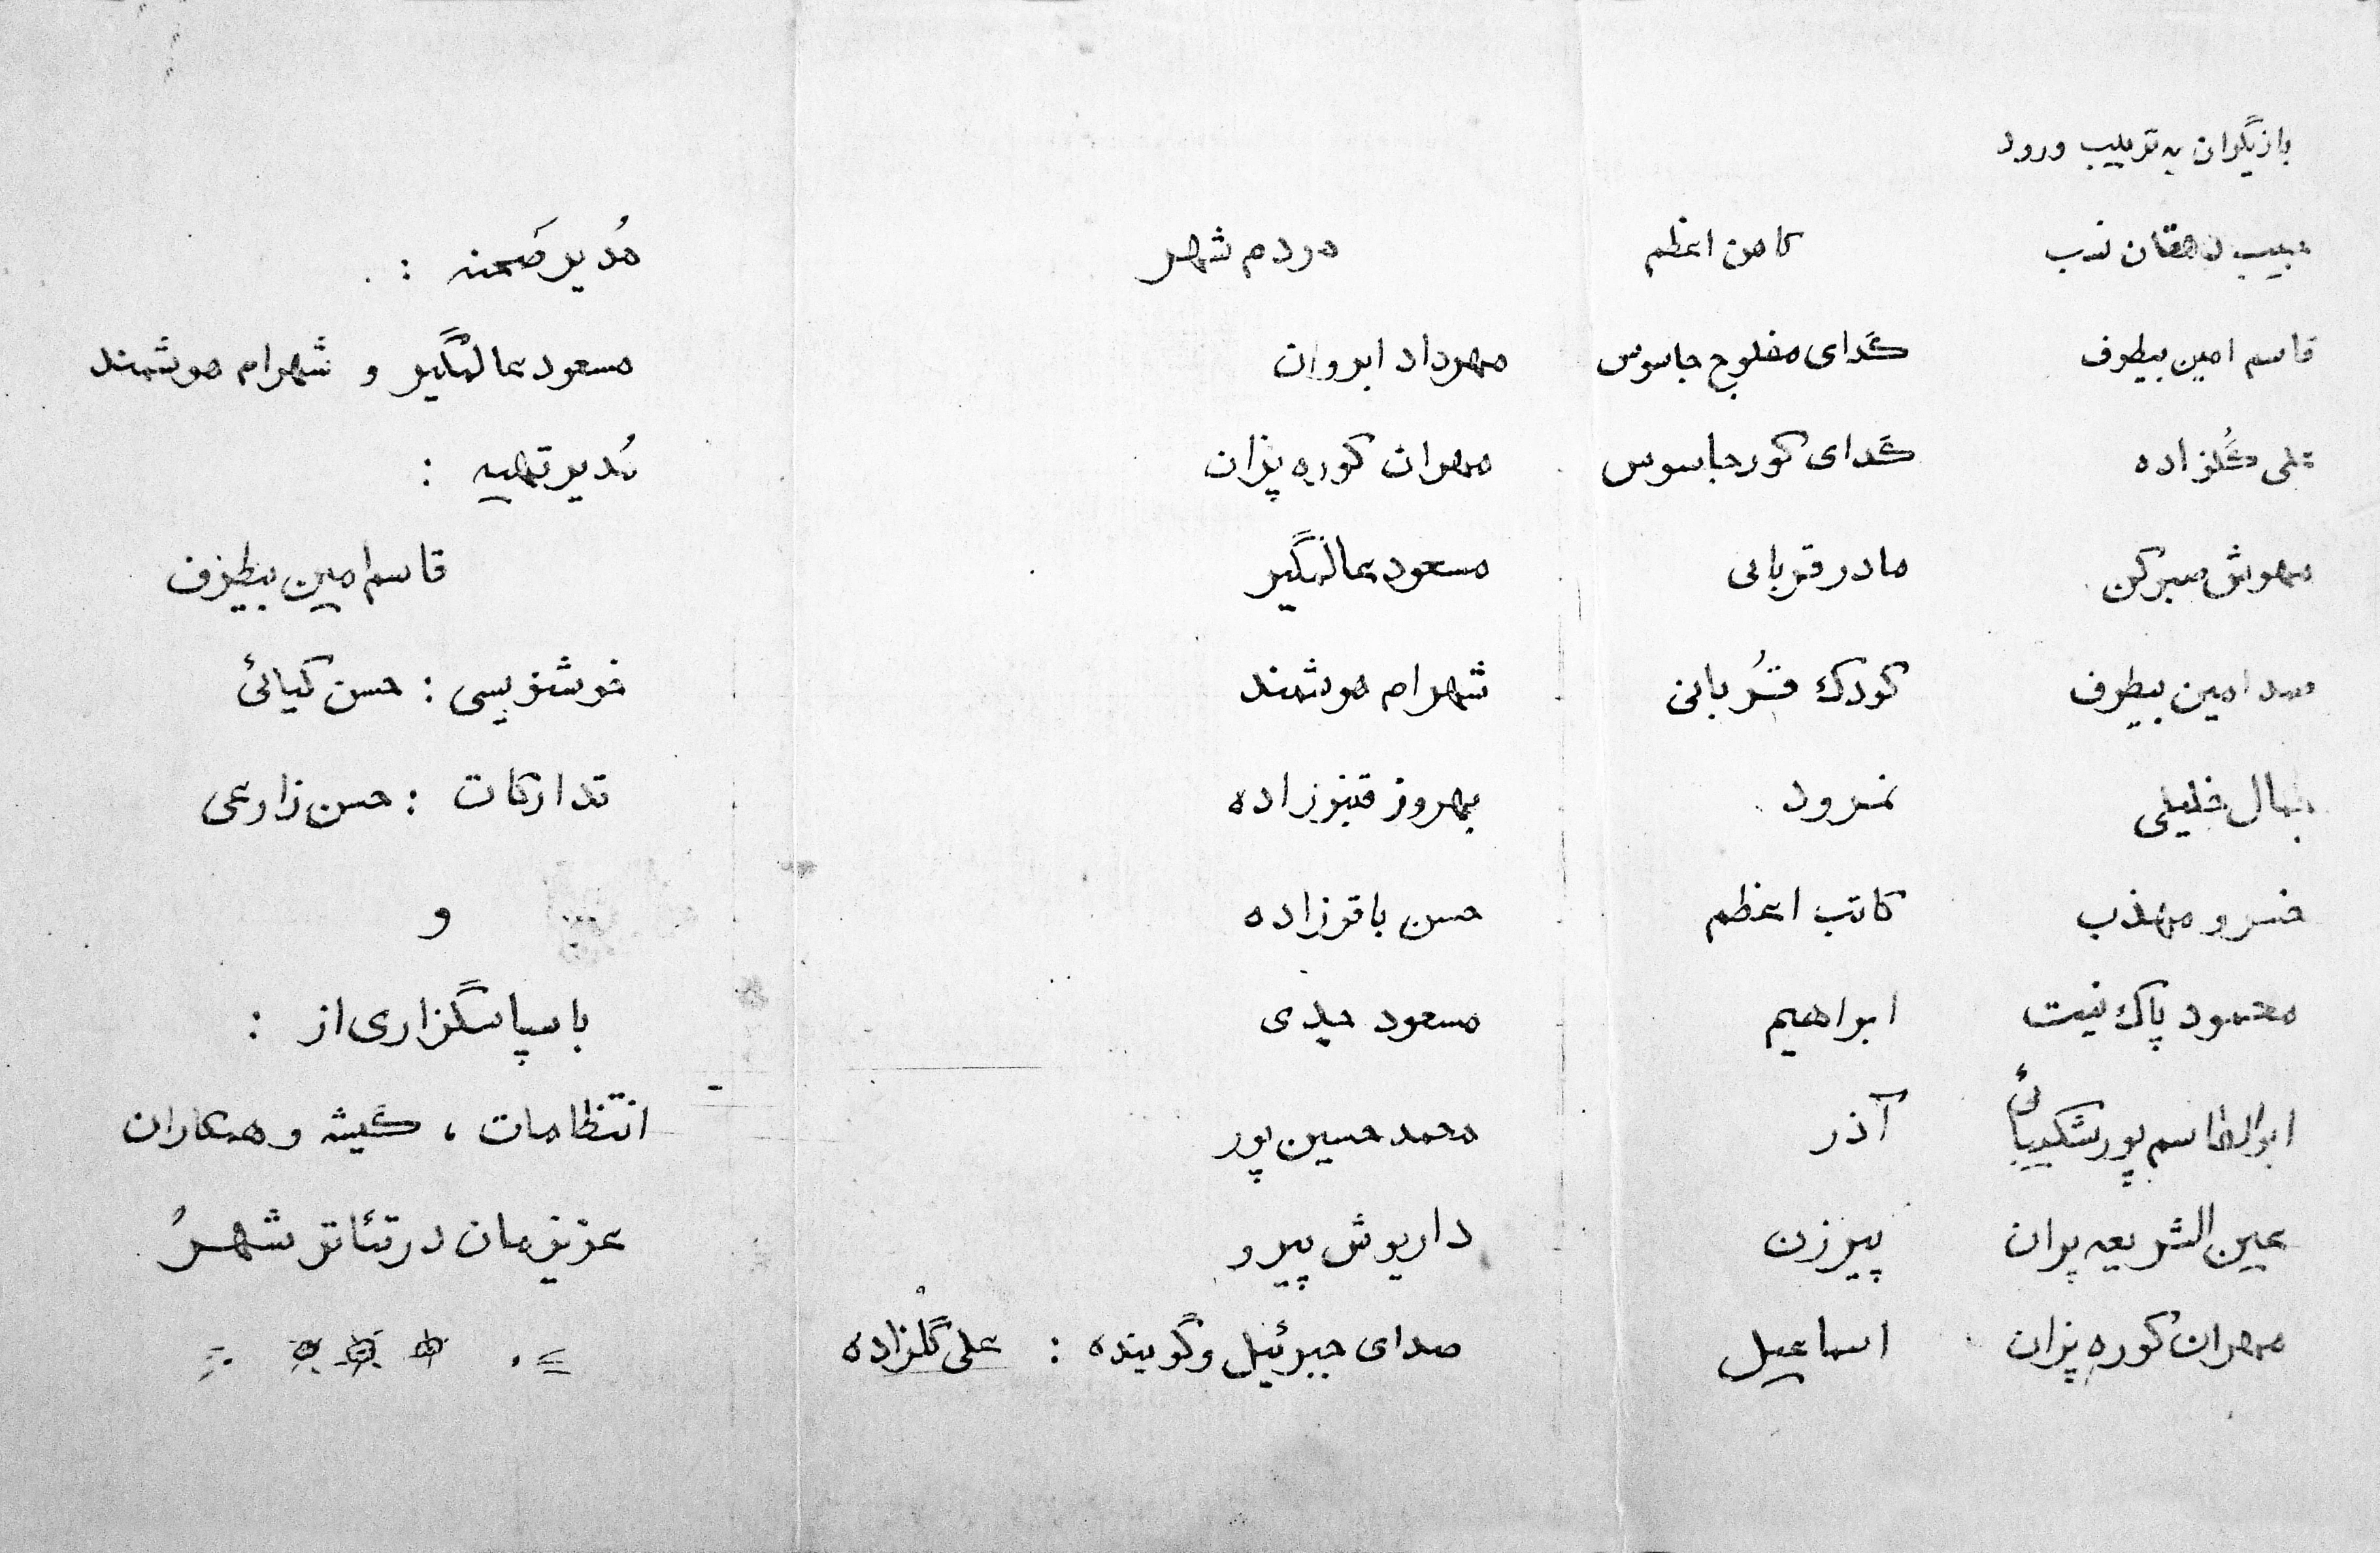 بازیگران به ترتیب ورود
حبیب دهقان نسب کاهن اعظم
قاسم امین بیطرف گدای مفلوج جاسوس
علی گلزاده گدای کور جاسوس
مهوش صبرکن مادر قربانی
صمد امین بیطرف کودک قُربانی
جمال خلیلی نمرود
خسرو مهذب کاتب اعظم
محمود پاک نیت ابراهیم
ابوالقاسم پورشکیبائی آذر
عین الشریعه پران پیرزن
مهران کوره پزان اسماعیل
مردم شهر
مهرداد ابروان
مهران کوره پزان
مسعود عالمگیر
شهرام هوشمند
بهروز قنبرزاده
حسن باقرزاده
مسعود حیدی
محمد حسین پور
داریوش پیرو
صدای جبرئیل و گوینده : علی گلزاده
مُدیر صَحنه :
مسعود عالمگیر و شهرام هوشمند
مُدیر تهیه :
قاسم امین بیطرف
خوشنویسی : حسن کیائی
تدارکات : حسن زارعی
و
با سپاسگزاری از :
انتظامات ، گیشه و همکاران
عزیزمان در تئاتر شهر